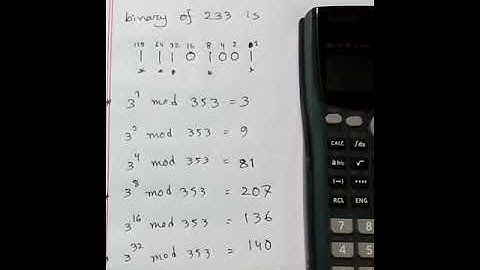 binary of 233 is
128 64 32 16 8 4 2 1
1 1 1 0 1 0 0 1
* * * * *
* 3^1 mod 353 = 3
3^2 mod 353 = 9
3^4 mod 353 = 81
* 3^8 mod 353 = 207
3^16 mod 353 = 136
* 3^32 mod 353 = 140
CALC ∫dx
a b/c √
(−) °'"
RCL ENG
7 8
4 5